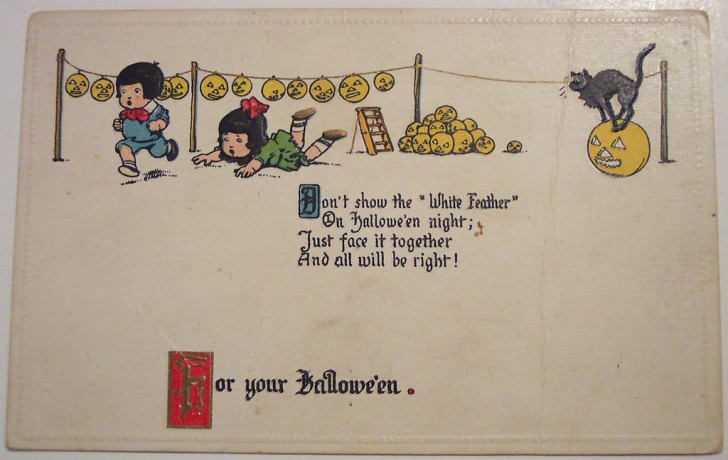 Don't show the "White Feather"
On Hallowe'en night;
Just face it together
And all will be right!
For your Hallowe'en.